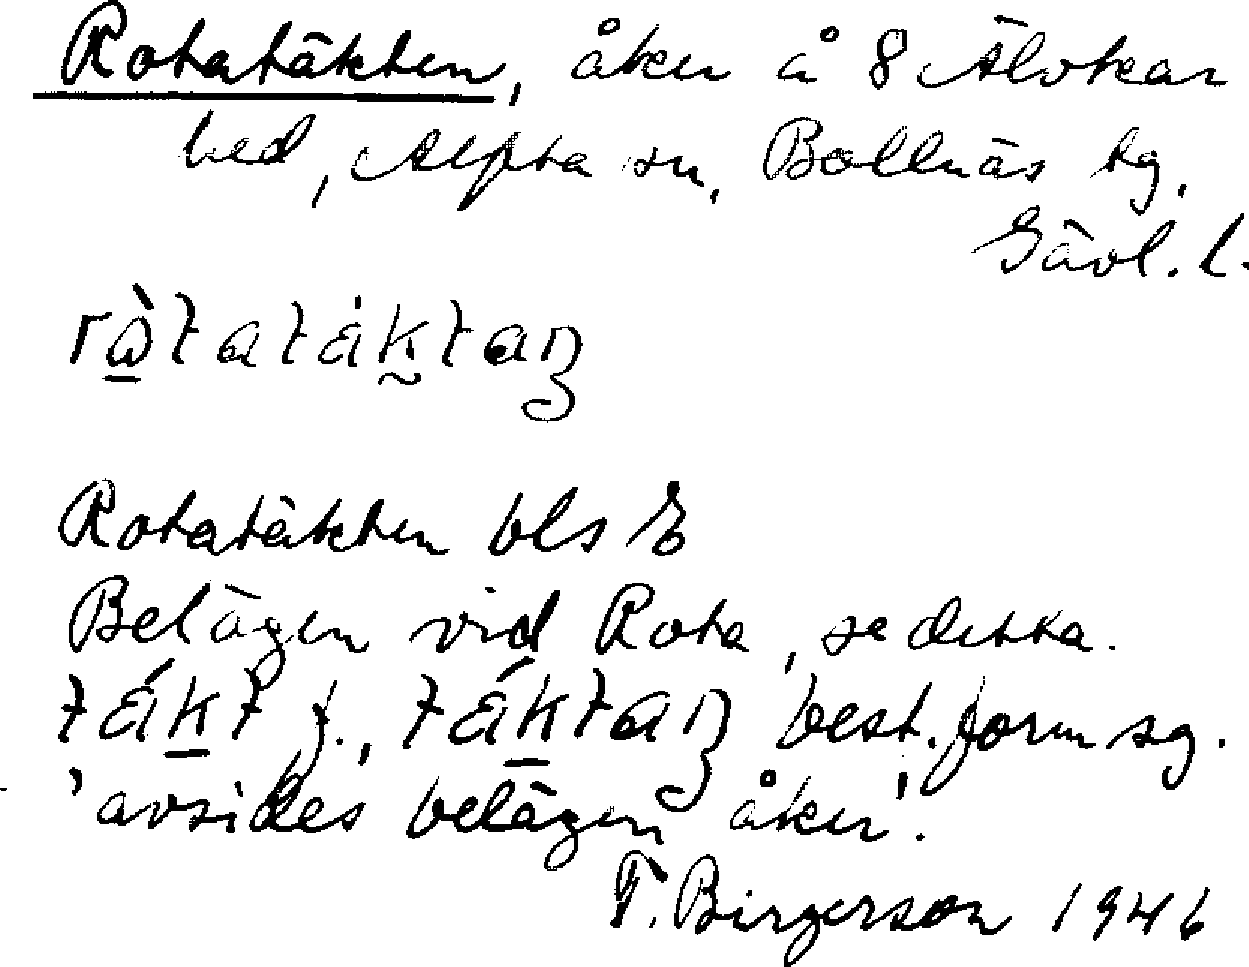 Rotatäkten, åker å 8 Älvkar
hed, Alfta sn, Bollnäs tg,
Gävl. l.
ràtatáktaŋ
Rotatäkten bls E
Belägen vid Rota, se detta.
tákt f., táktaŋ best. form sg.
'avsides belägen åker'.
T. Birgerson 1946